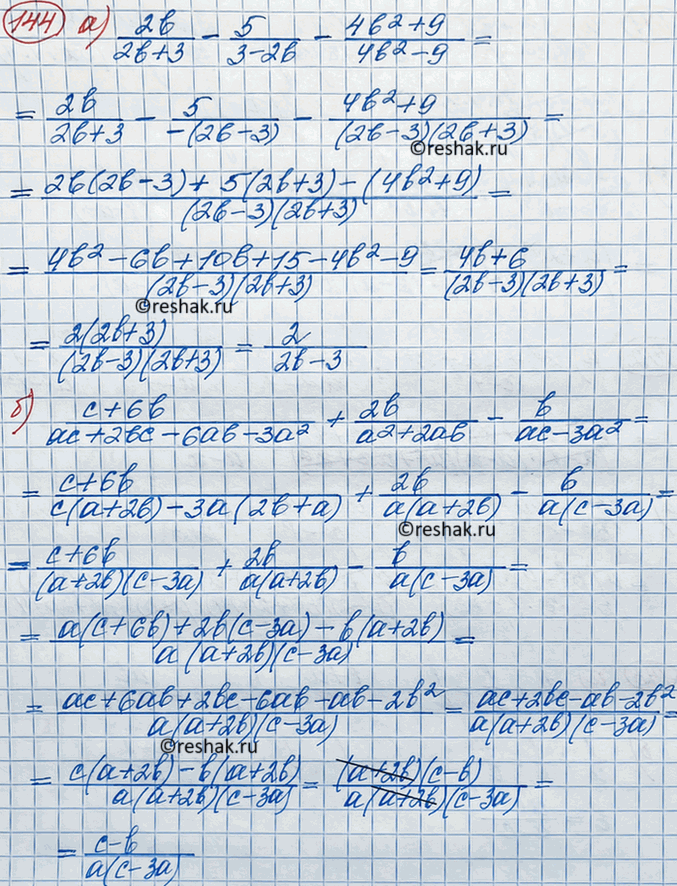 144 а) 2b/(2b+3) − 5/(3−2b) − (4b²+9)/(4b²−9) =
= 2b/(2b+3) − 5/(−(2b−3)) − (4b²+9)/((2b−3)(2b+3)) =
©reshak.ru
= (2b(2b−3)+5(2b+3)−(4b²+9))/((2b−3)(2b+3)) =
= (4b²−6b+10b+15−4b²−9)/((2b−3)(2b+3)) = (4b+6)/((2b−3)(2b+3)) =
©reshak.ru
= 2(2b+3)/((2b−3)(2b+3)) = 2/(2b−3)
б) (c+6b)/(ac+2bc−6ab−3a²) + 2b/(a²+2ab) − b/(ac−3a²) =
= (c+6b)/(c(a+2b)−3a(2b+a)) + 2b/(a(a+2b)) − b/(a(c−3a)) =
©reshak.ru
= (c+6b)/((a+2b)(c−3a)) + 2b/(a(a+2b)) − b/(a(c−3a)) =
= (a(c+6b)+2b(c−3a)−b(a+2b))/(a(a+2b)(c−3a)) =
= (ac+6ab+2bc−6ab−ab−2b²)/(a(a+2b)(c−3a)) = (ac+2bc−ab−2b²)/(a(a+2b)(c−3a)) =
©reshak.ru
= (c(a+2b)−b(a+2b))/(a(a+2b)(c−3a)) = (a+2b)(c−b)/(a(a+2b)(c−3a)) =
= (c−b)/(a(c−3a))